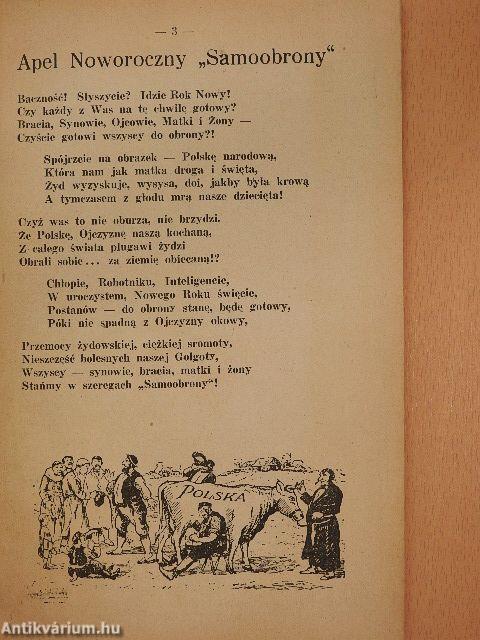 — 3 —
Apel Noworoczny „Samoobrony“
Baczność! Słyszycie? Idzie Rok Nowy!
Czy każdy z Was na tę chwilę gotowy?
Bracia, Synowie, Ojcowie, Matki i Żony —
Czyście gotowi wszyscy do obrony?!
Spójrzcie na obrazek — Polskę narodową,
Która nam jak matka droga i święta,
Żyd wyzyskuje, wysysa, doi, jakby była krową
A tymczasem z głodu mrą nasze dziecięta!
Czyż was to nie oburza, nie brzydzi.
Że Polskę, Ojczyznę naszą kochaną,
Z całego świata plugawi żydzi
Obrali sobie... za ziemię obiecaną!?
Chłopie, Robotniku, Inteligencie,
W uroczystem, Nowego Roku święcie,
Postanów — do obrony stanę, będę gotowy,
Póki nie spadną z Ojczyzny okowy,
Przemocy żydowskiej, ciężkiej sromoty,
Nieszczęść bolesnych naszej Golgoty,
Wszyscy — synowie, bracia, matki i żony
Stańmy w szeregach „Samoobrony“!
POLSKA
Antikvárium.hu